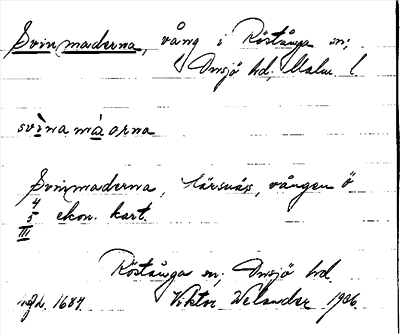 Svinmaderna, vång i Röstånga sn;
Onsjö hd, Malm. l
svìnamáorna
Svinmaderna, kärsväs, vången ö
4/5 ekon. kart.
III
Röstånga sn, Onsjö hd.
1684. Viktor Welander 1936.